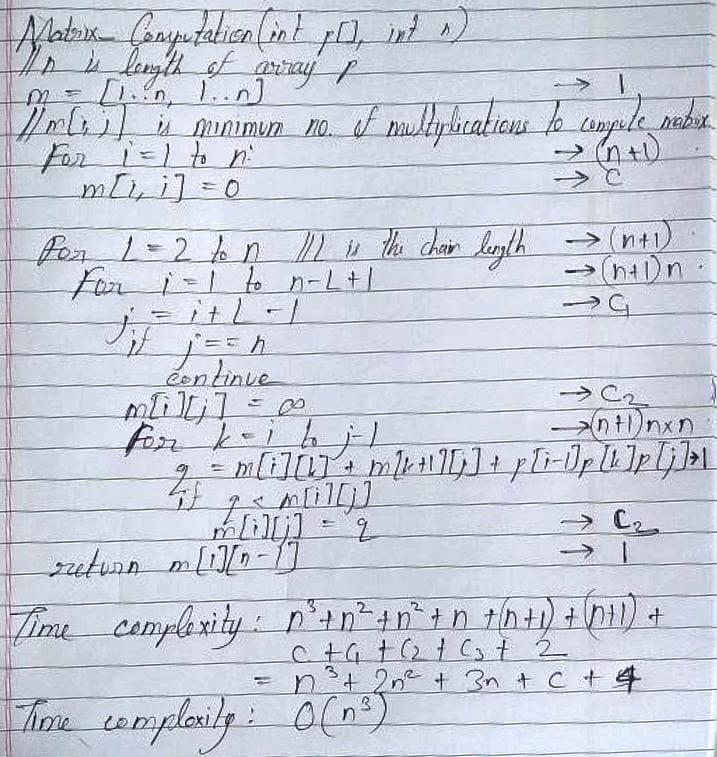 Matrix_Computation(int p[], int n)
//n is length of array p
m = [1..n, 1..n] → 1
//m[i,j] is minimum no. of multiplications to compute matrix
For i=1 to n: → (n+1)
m[i, i] = 0 → C
For L=2 to n //L is the chain length → (n+1)
For i=1 to n-L+1 → (n+1)n
j = i+L-1 → C₁
if j==n
continue
m[i][j] = ∞ → C₂
For k=i to j-1 → (n+1)n×n
q = m[i][k] + m[k+1][j] + p[i-1]p[k]p[j]→1
if q < m[i][j]
m[i][j] = q → C₂
return m[1][n-1] → 1
Time complexity: n³+n²+n²+n+(n+1)+(n+1)+
C+C₁+C₂+C₃+2
= n³+2n²+3n+C+4
Time complexity: O(n³)